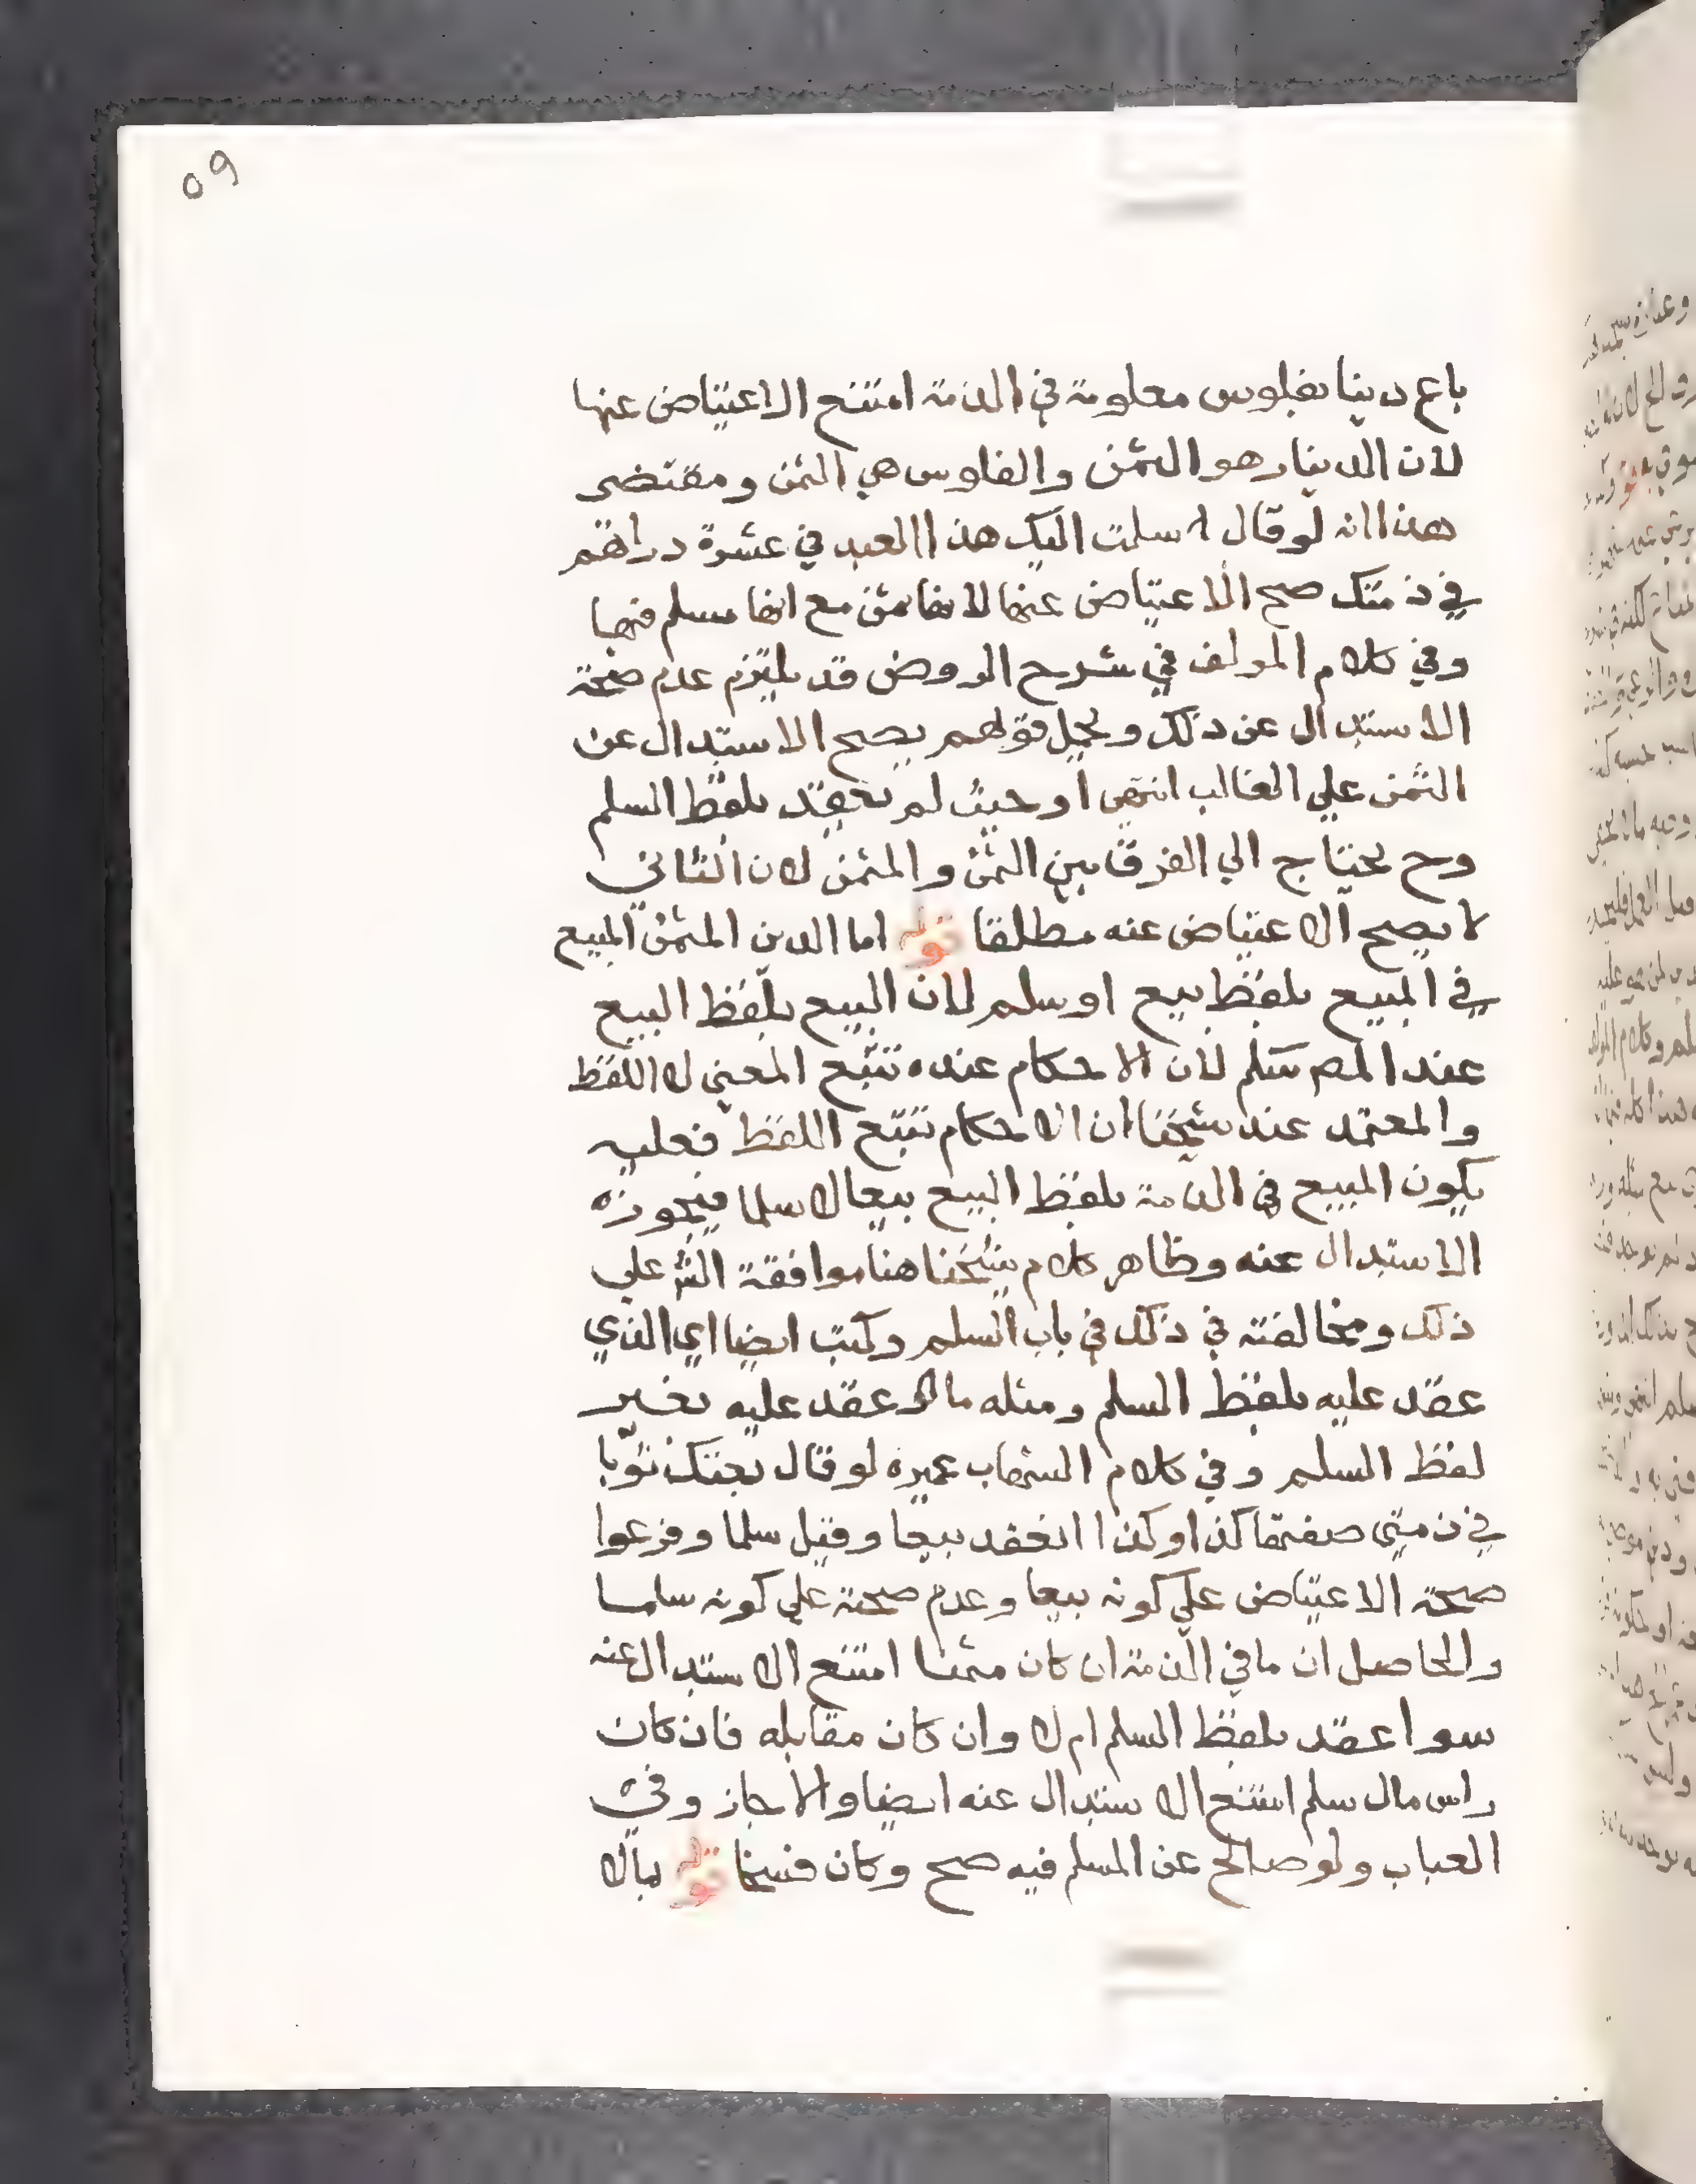 ٥٩
باع دينا بفلوس معلومة في الذمة امتنع الاعتياض عنها
لان الدينار هو الثمن والفلوس هي الثمن ومقتضى
هذا انه لو قال اسلمت اليك هذا العبد في عشرة دراهم
في ذمتك صح الاعتياض عنها لانها ثمن مع انها مسلم فيها
وفي كلام المولف في شرح الروض قد يلتزم عدم صحة
الاستبدال عن ذلك ويحمل قولهم يصح الاستبدال عن
الثمن علي الغالب انتهي او حيث لم يعقد بلفظ السلم
وح يحتاج الي الفرق بين الثمن والمثمن لان الثاني
لا يصح الاعتياض عنه مطلقا قوله اما الدين المثمن المبيع
في المبيع بلفظ بيع او سلم لان البيع بلفظ البيع
عند المص سلم لان الاحكام عنده تتبع المعني لا اللفظ
والمعتمد عند شيخنا ان الاحكام تتبع اللفظ فعليه
يكون المبيع في الذمة بلفظ البيع بيعا لا سلما فيجوز
الاستبدال عنه وظاهر كلام شيخنا هنا موافقة الش علي
ذلك ومخالفته في ذلك في باب السلم وكتب ايضا اي الذي
عقد عليه بلفظ السلم ومثله ما لو عقد عليه بغير
لفظ السلم وفي كلام الشهاب عميره لو قال بعتك ثوبا
في ذمتي صفتها كذا وكذا انعقد بيعا وقيل سلما وفرعوا
صحة الاعتياض علي كونه بيعا وعدم صحته علي كونه سلما
والحاصل ان ما في الذمة ان كان مثمنا امتنع الاستبدال عنه
سوا عقد بلفظ السلم ام لا وان كان مقابله فان كان
راس مال سلم امتنع الاستبدال عنه ايضا والا جاز وفي
العباب ولو صالح عن المسلم فيه صح وكان فسخا قوله بمال